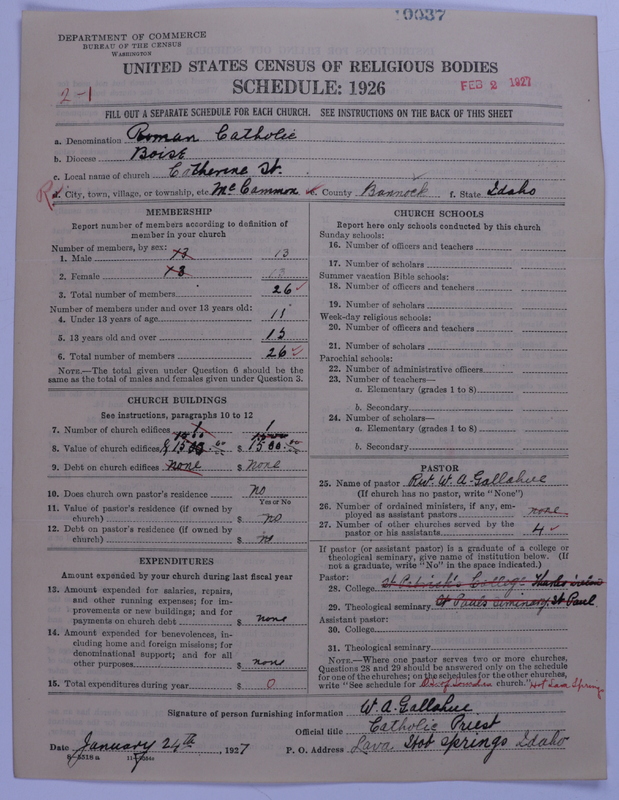 10037
DEPARTMENT OF COMMERCE
BUREAU OF THE CENSUS
WASHINGTON
UNITED STATES CENSUS OF RELIGIOUS BODIES
SCHEDULE: 1926
2-1
FEB 2 1927
FILL OUT A SEPARATE SCHEDULE FOR EACH CHURCH. SEE INSTRUCTIONS ON THE BACK OF THIS SHEET
a. Denomination Roman Catholic
b. Diocese Boise
c. Local name of church Catherine St.
d. City, town, village, or township, etc. McCammon e. County Bannock f. State Idaho
MEMBERSHIP
Report number of members according to definition of member in your church
Number of members, by sex:
1. Male 13 13
2. Female 13 13
3. Total number of members 26
Number of members under and over 13 years old:
4. Under 13 years of age 11
5. 13 years old and over 15
6. Total number of members 26
NOTE.—The total given under Question 6 should be
same as the total of males and females given under Question 3.
CHURCH BUILDINGS
See instructions, paragraphs 10 to 12
7. Number of church edifices 1 1
8. Value of church edifices $ 1500.00 $ 1500.00
9. Debt on church edifices none $ none
10. Does church own pastor's residence no
Yes or No
11. Value of pastor's residence (if owned by
church) $ no
12. Debt on pastor's residence (if owned by
church) $ no
EXPENDITURES
Amount expended by your church during last fiscal year
13. Amount expended for salaries, repairs,
and other running expenses; for im-
provements or new buildings; and for
payments on church debt $ none
14. Amount expended for benevolences, in-
cluding home and foreign missions; for
denominational support; and for all
other purposes $ none
15. Total expenditures during year $ 0
CHURCH SCHOOLS
Report here only schools conducted by this church
Sunday schools:
16. Number of officers and teachers
17. Number of scholars
Summer vacation Bible schools:
18. Number of officers and teachers
19. Number of scholars
Week-day religious schools:
20. Number of officers and teachers
21. Number of scholars
Parochial schools:
22. Number of administrative officers
23. Number of teachers—
a. Elementary (grades 1 to 8)
b. Secondary
24. Number of scholars—
a. Elementary (grades 1 to 8)
b. Secondary
PASTOR
25. Name of pastor Rev. W. A. Gallahue
(If church has no pastor, write "None")
26. Number of ordained ministers, if any, em-
ployed as assistant pastors none
27. Number of other churches served by the
pastor or his assistants 4
If pastor (or assistant pastor) is a graduate of a college or
theological seminary, give name of institution below. (If
not a graduate, write "No" in the space indicated.)
Pastor:
28. College St Patrick's College
29. Theological seminary St Pauls Seminary, St Paul
Assistant pastor:
30. College
31. Theological seminary
NOTE.—Where one pastor serves two or more churches,
Questions 28 and 29 should be answered only on the schedule
for one of the churches; on the schedules for the other churches,
write "See schedule for church." Hot Lava Springs
Signature of person furnishing information W. A. Gallahue
Official title Catholic Priest
Date January 24th, 1927 P. O. Address Lava Hot Springs Idaho